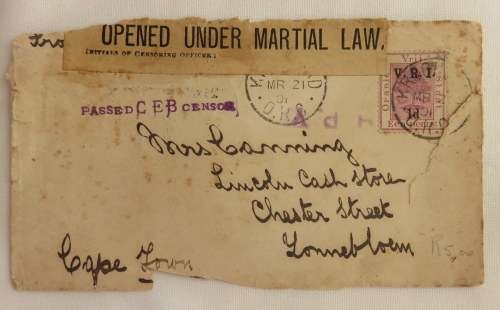 OPENED UNDER MARTIAL LAW.
(INITIALS OF CENSORING OFFICER)
PASSED C E B CENSOR
MR 21
01
O.R.C.
V.R.I.
1d
Mrs Canning
Lincoln Cash Store
Chester Street
Zonnebloem
Cape Town
R5,00